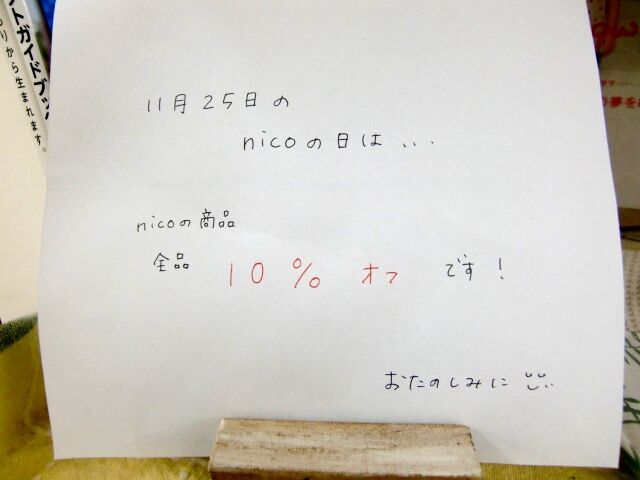 11月25日の
nicoの日は...
nicoの商品
全品 10% オフ です！
おたのしみに
トガイドブック
りから生まれます。
の夢を